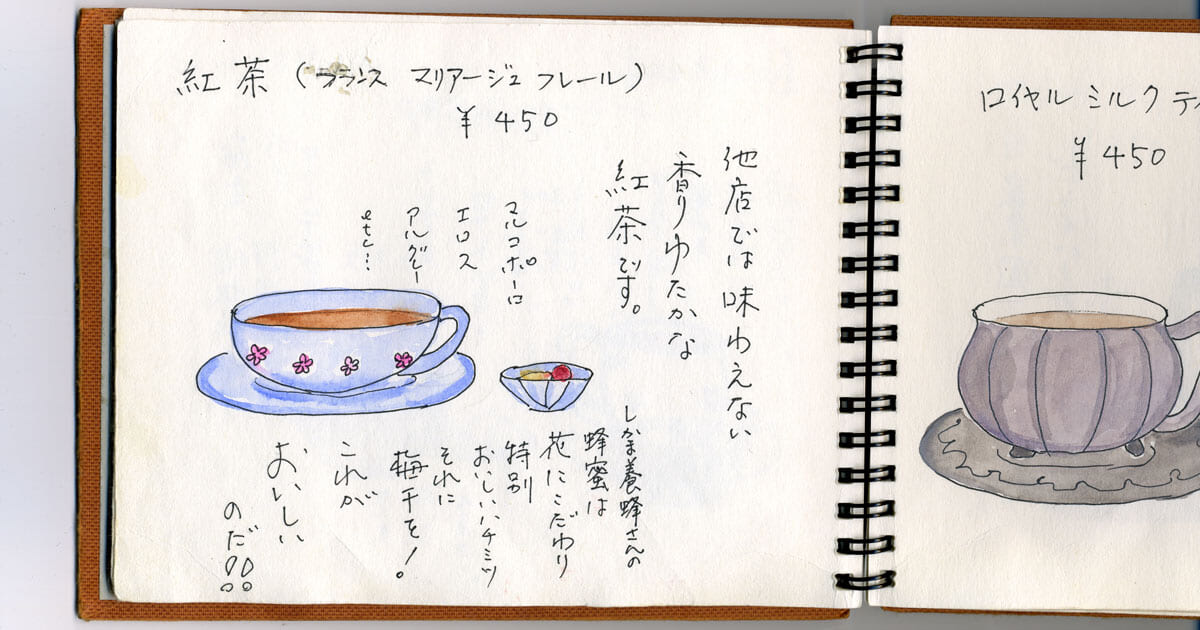 紅茶（フランス マリアージュ フレール）
¥450
他店では味わえない
香りゆたかな
紅茶です。
マルコポーロ
エロス
アルグレー
etc…
しかま養蜂さんの
蜂蜜は
花にこだわり
特別
おいしいハチミツ
それに
梅干を!。
これが
おいしい
のだ!!
ロイヤル ミルク テ
¥450